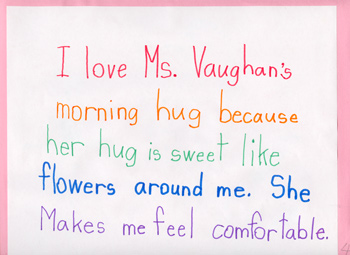 I love Ms. Vaughan's
morning hug because
her hug is sweet like
flowers around me. She
Makes me feel comfortable.
4